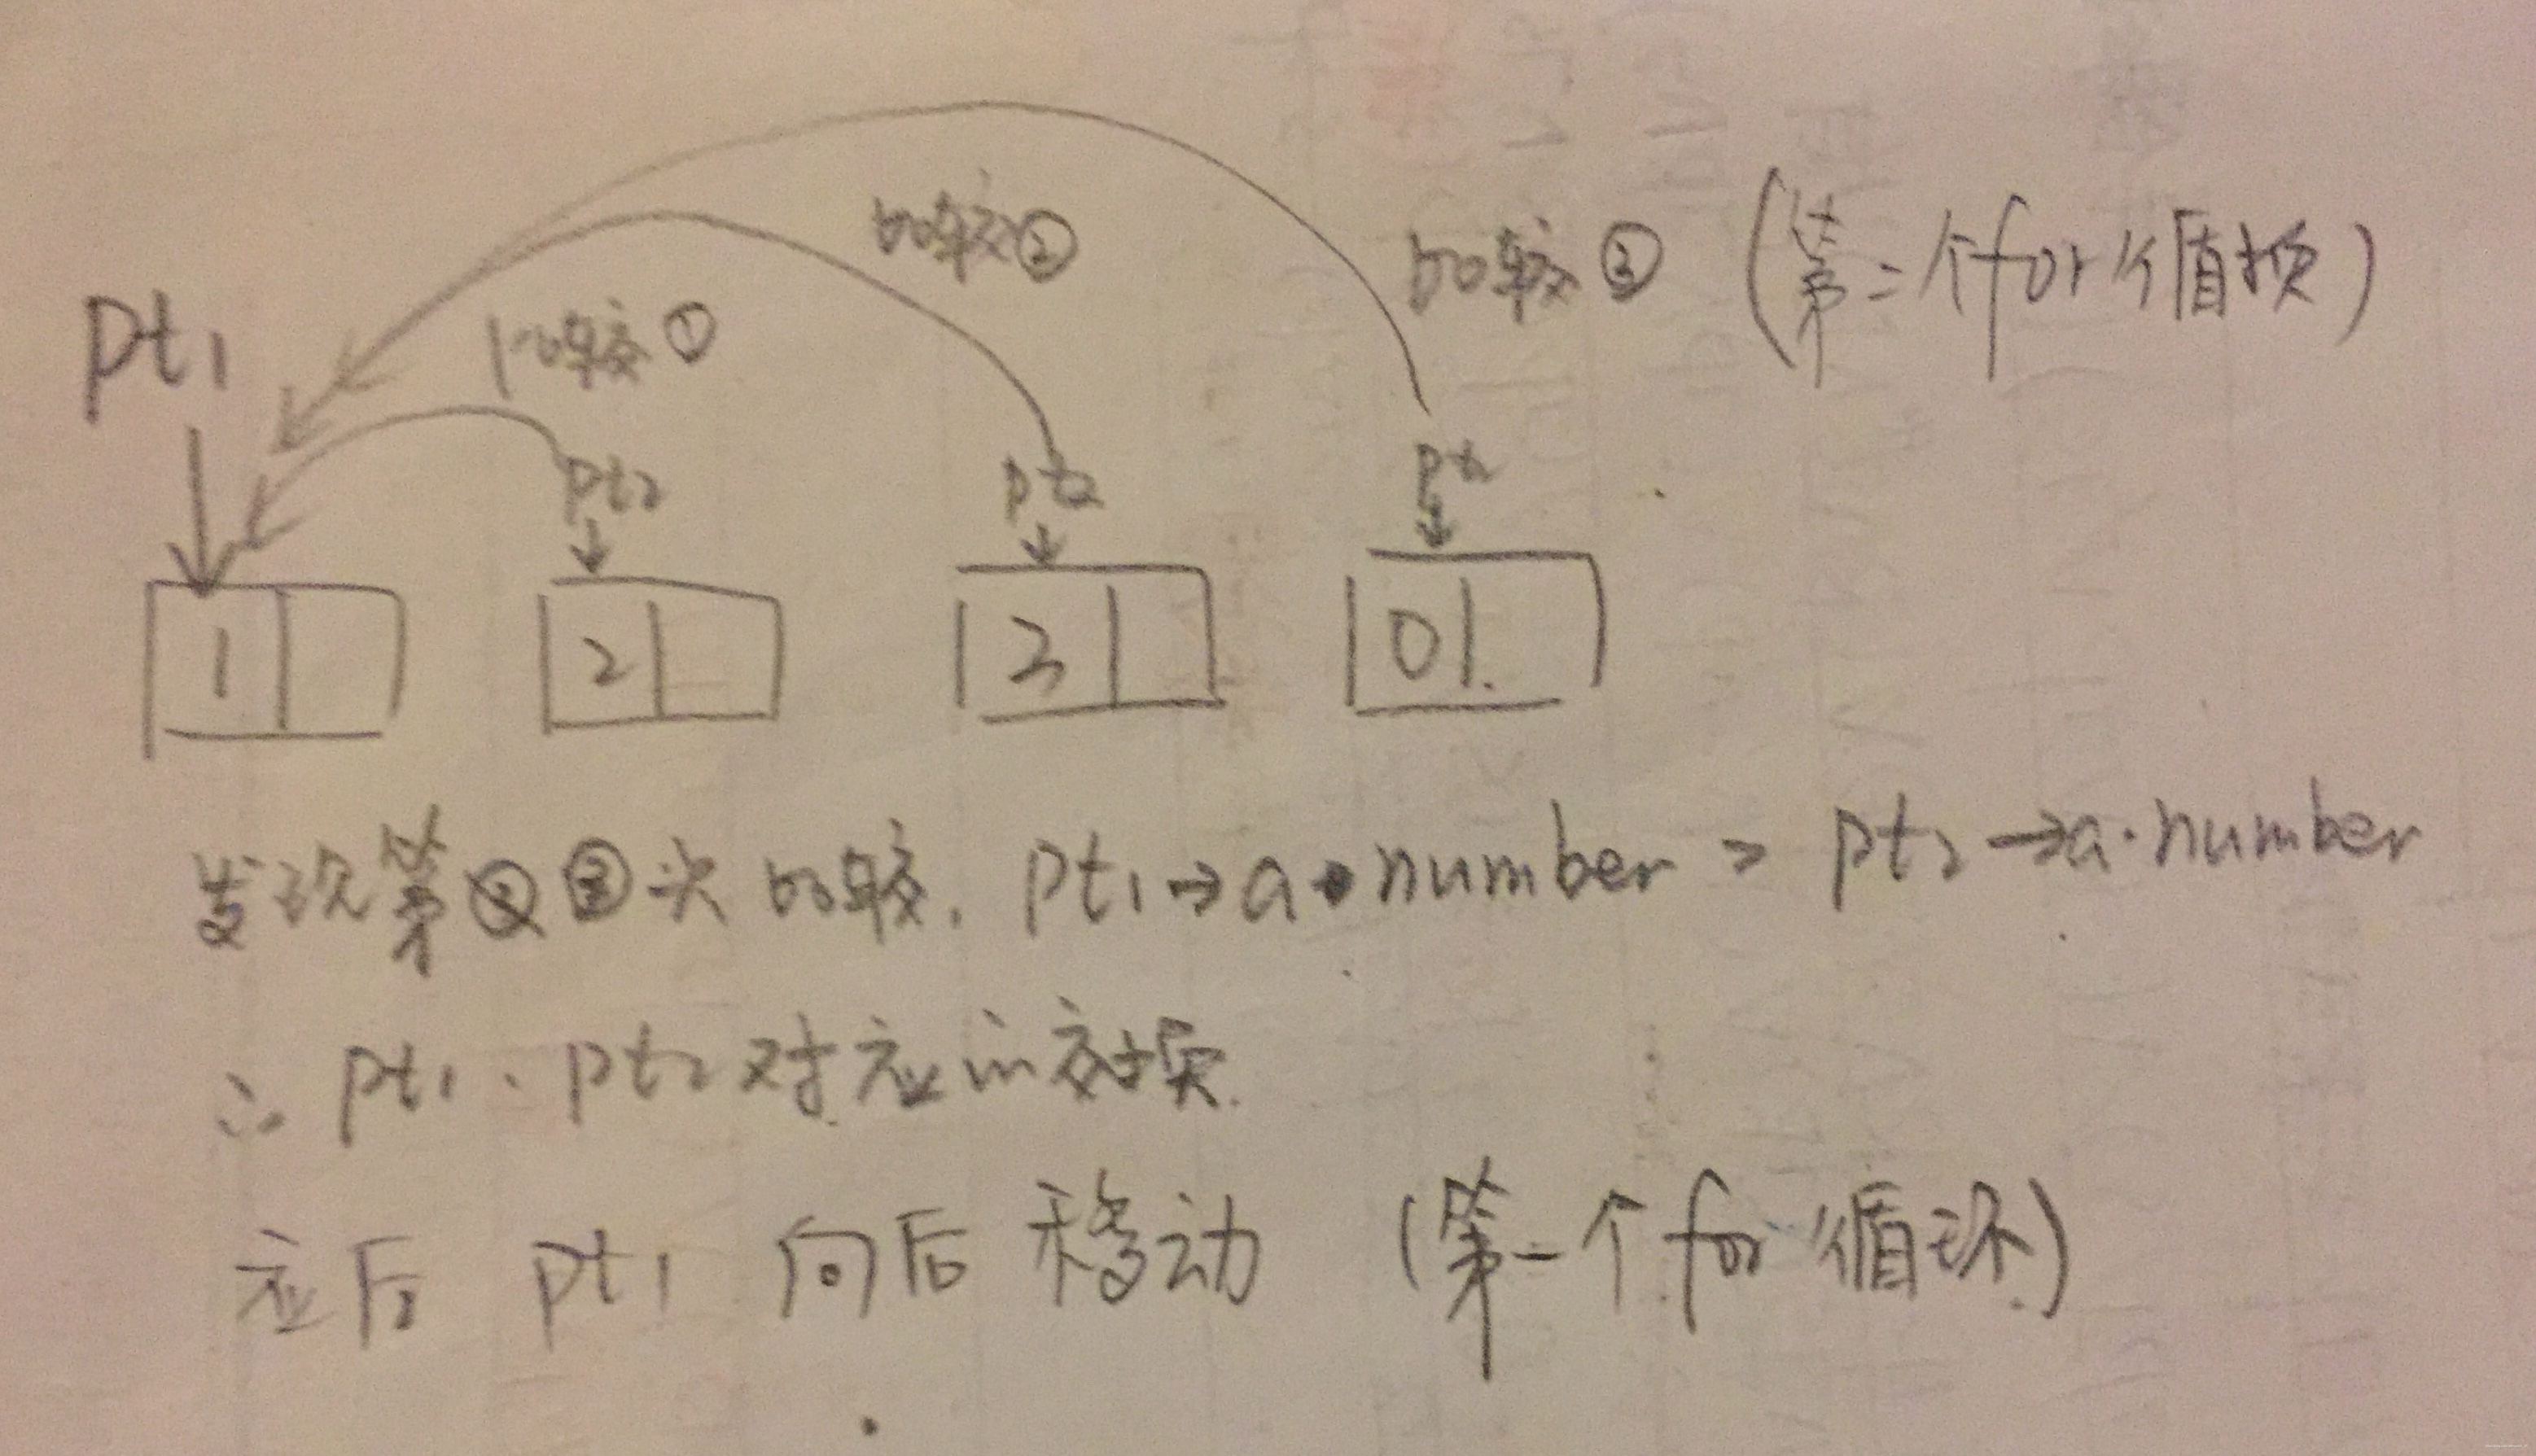 比较② 比较③ (第二个for循环)
pt1 比较①
pt2 pt2 pt2
1 2 3 0
发现第③次比较. pt1→a.number > pt2→a.number
∴ pt1、pt2对应的交换.
应后 pt1 向后移动 (第一个for循环)